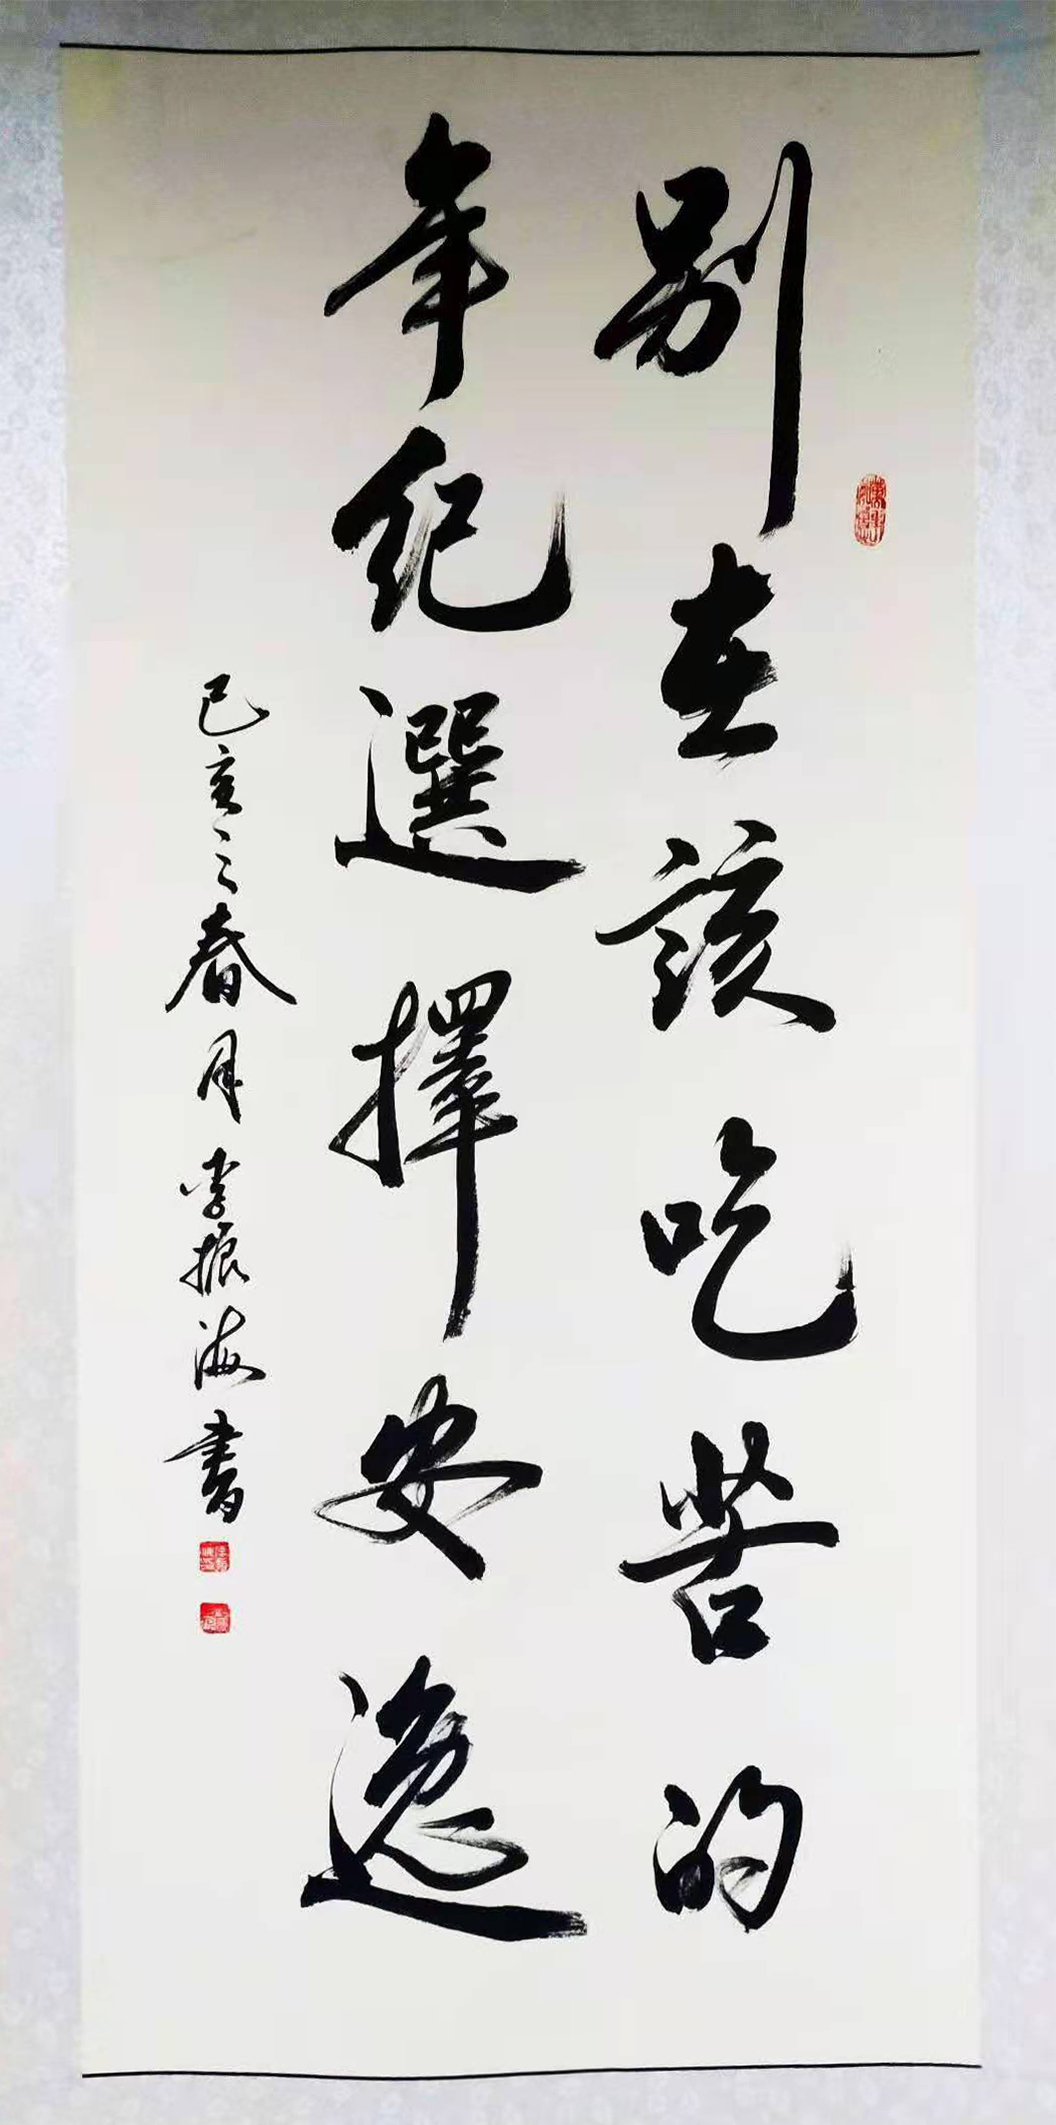 别在该吃苦的
年纪選擇安逸
己亥之春月李振海書